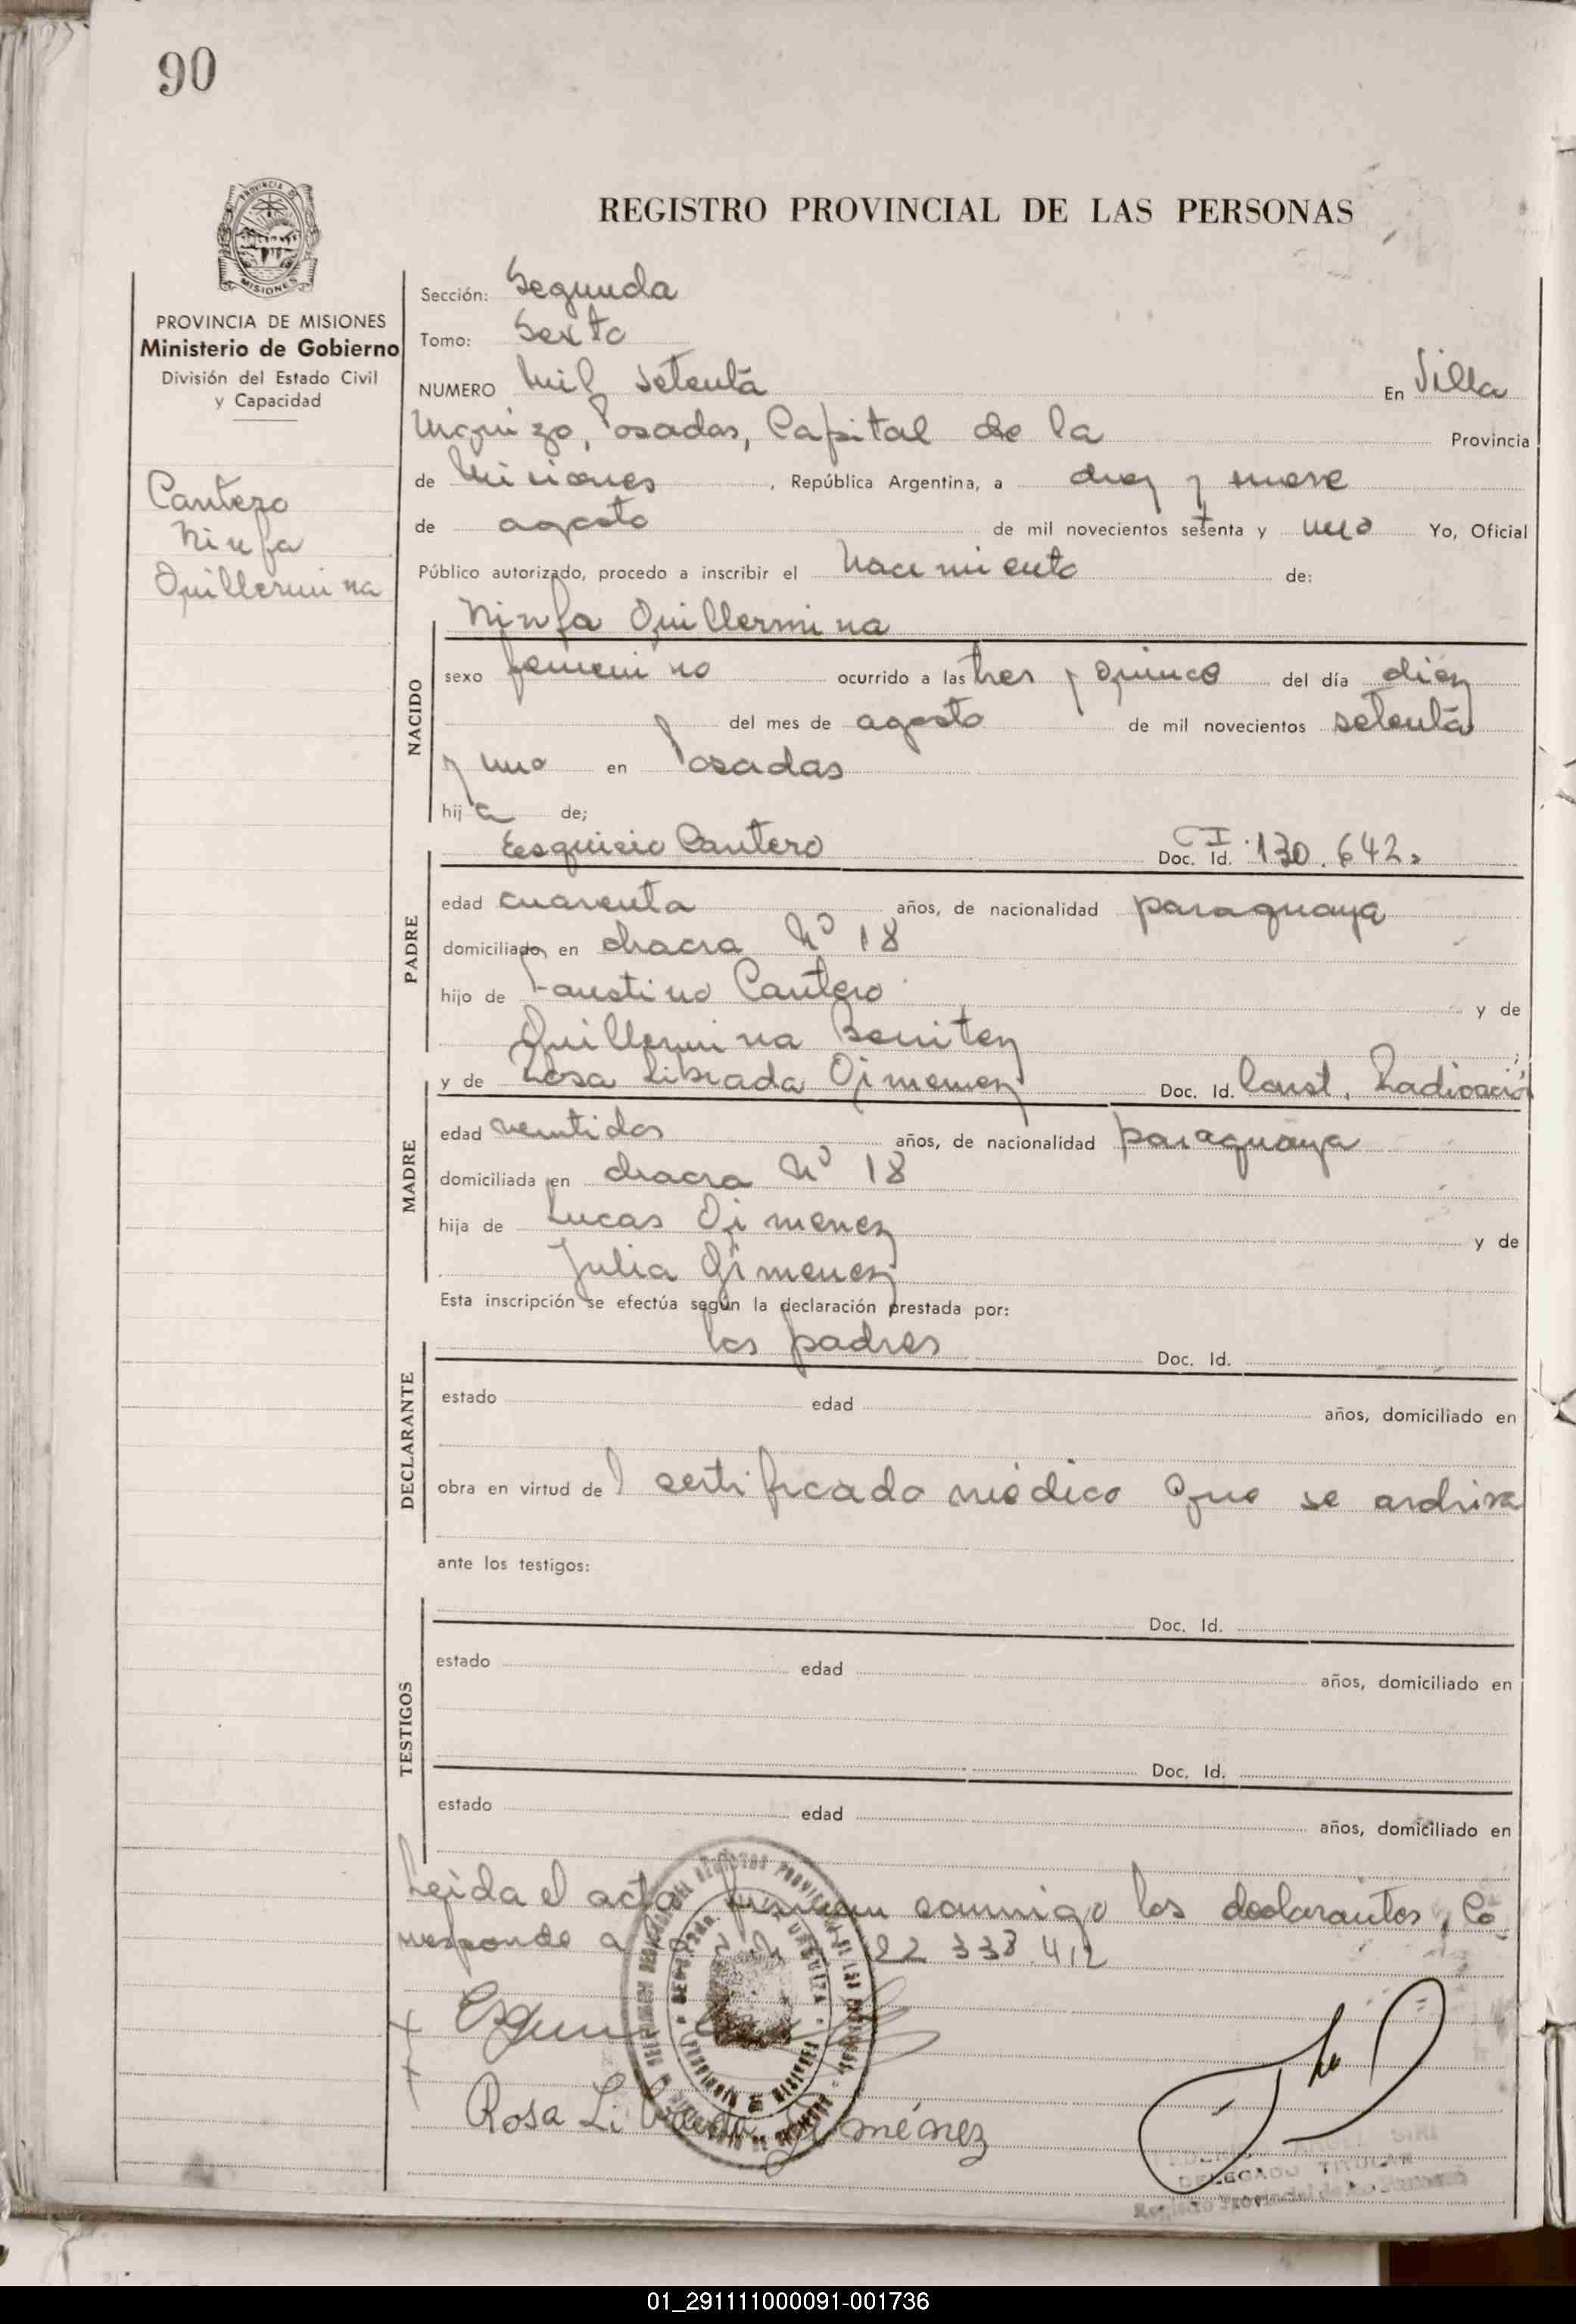 90
PROVINCIA DE
MISIONES
REGISTRO PROVINCIAL DE LAS PERSONAS
PROVINCIA DE MISIONES
Ministerio de Gobierno
División del Estado Civil
y Capacidad
Cantero
Ninfa
Guillermina
Sección: Segunda
Tomo: Sexto
NUMERO Mil setenta En Villa
Urquiza, Posadas, Capital de la Provincia
de Misiones, República Argentina, a diez y nueve
de agosto de mil novecientos setenta y uno Yo, Oficial
Público autorizado, procedo a inscribir el Nacimiento de:
Ninfa Guillermina
NACIDO
sexo femenino ocurrido a las tres y quince del día diez
del mes de agosto de mil novecientos setenta
y uno en Posadas
hija de;
Esquicio Cantero C I Doc. Id. 130.642.
PADRE
edad cuarenta años, de nacionalidad paraguaya
domiciliado en chacra Nº 18
hijo de Faustino Cantero y de
Guillermina Benitez
y de Rosa Librada Gimenez Doc. Id. Const. Radicación
MADRE
edad veintidos años, de nacionalidad paraguaya
domiciliada en chacra Nº 18
hija de Lucas Gimenez y de
Julia Gimenez
Esta inscripción se efectúa según la declaración prestada por:
los padres Doc. Id.
DECLARANTE
estado edad años, domiciliado en
obra en virtud del certificado médico que se archiva
ante los testigos:
Doc. Id.
TESTIGOS
estado edad años, domiciliado en
Doc. Id.
estado edad años, domiciliado en
Leida el acta firman conmigo los declarantes, Co
rresponde a 22 338.412
Rosa Librada Giménez
ANGEL SIRI
DELEGADO TITULAR
01_291111000091-001736